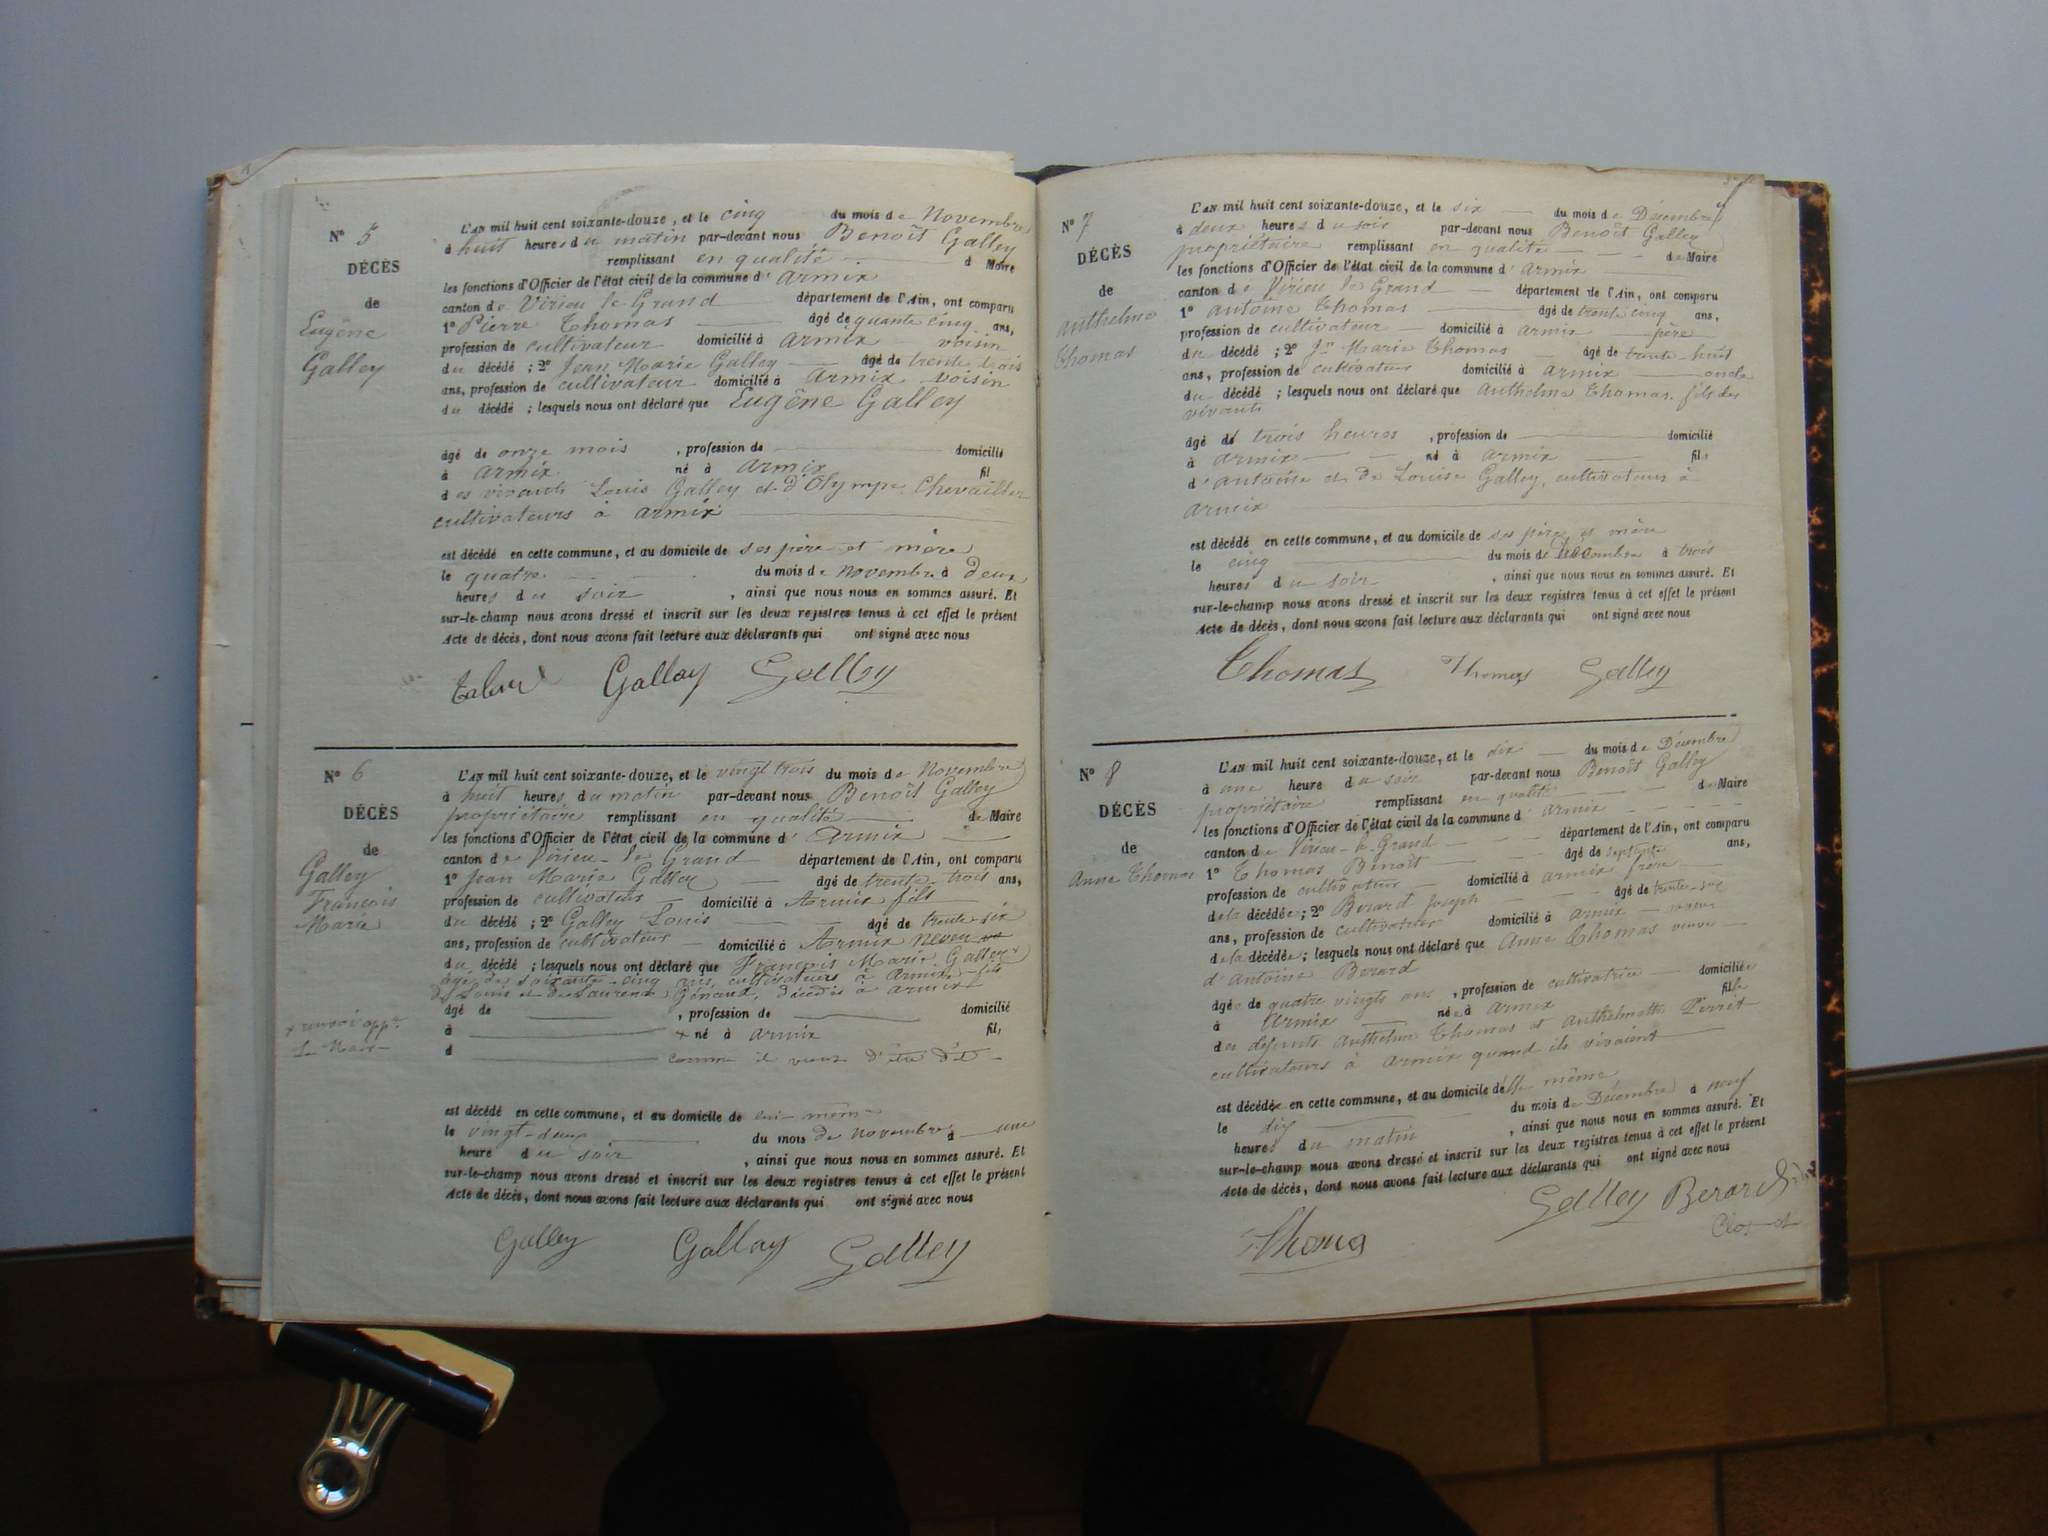 N° 5
DÉCÈS
de
Eugène
Galley
L'AN mil huit cent soixante-douze, et le cinq du mois de Novembre
à huit heures du matin par-devant nous Benoît Galley
remplissant en qualité d Maire
les fonctions d'Officier de l'état civil de la commune d'Armix
canton de Virieu le Grand département de l'Ain, ont comparu
1° Pierre Thomas âgé de quante cinq ans,
profession de cultivateur domicilié à Armix voisin
du décédé ; 2° Jean Marie Galley âgé de trente trois
ans, profession de cultivateur domicilié à Armix voisin
du décédé ; lesquels nous ont déclaré que Eugêne Galley
âgé de onze mois , profession de domicilié
à Armix né à Armix fil
des vivants Louis Galley et d'Olympe Chevaillier
cultivateurs à Armix
est décédé en cette commune, et au domicile de ses père et mère
le quatre du mois de Novembre à deux
heures du soir , ainsi que nous nous en sommes assuré. Et
sur-le-champ nous avons dressé et inscrit sur les deux registres tenus à cet effet le présent
Acte de décès, dont nous avons fait lecture aux déclarants qui ont signé avec nous
Gallay Galley
N° 6
DÉCÈS
de
Galley
François
Marie
L'AN mil huit cent soixante-douze, et le vingt trois du mois de Novembre
à huit heures du matin par-devant nous Benoît Galley
propriétaire remplissant en qualité de Maire
les fonctions d'Officier de l'état civil de la commune d'Armix
canton de Virieu-le-Grand département de l'Ain, ont comparu
1° Jean Marie Galley âgé de trente-trois ans,
profession de cultivateur domicilié à Armix fils
du décédé ; 2° Galley Louis âgé de trente six
ans, profession de cultivateur domicilié à Armix neveu
du décédé ; lesquels nous ont déclaré que François Marie Galley
âgé de soixante-cinq ans, cultivateur à Armix fils
de Louis et de Laurence décédés à Armix
âgé de , profession de domicilié
à né à Armix fil
d comme il vient d'être dit
est décédé en cette commune, et au domicile de lui-même
le vingt-deux du mois de Novembre à une
heure du soir , ainsi que nous nous en sommes assuré. Et
sur-le-champ nous avons dressé et inscrit sur les deux registres tenus à cet effet le présent
Acte de décès, dont nous avons fait lecture aux déclarants qui ont signé avec nous
Galley Gallay Galley
N° 7
DÉCÈS
de
Anthelme
Thomas
L'AN mil huit cent soixante-douze, et le six du mois de Décembre
à deux heures du soir par-devant nous Benoît Galley
propriétaire remplissant en qualité de Maire
les fonctions d'Officier de l'état civil de la commune d'Armix
canton de Virieu le Grand département de l'Ain, ont comparu
1° Antoine Thomas âgé de trente cinq ans,
profession de cultivateur domicilié à Armix père
du décédé ; 2° Jn Marie Thomas âgé de trente-huit
ans, profession de cultivateur domicilié à Armix oncle
du décédé ; lesquels nous ont déclaré que Anthelme Thomas, fils des
vivants
âgé de trois heures , profession de domicilié
à Armix né à Armix fils
d'Antoine et de Louise Galley, cultivateurs à
Armix
est décédé en cette commune, et au domicile de ses père et mère
le cinq du mois de décembre à trois
heures du soir , ainsi que nous nous en sommes assuré. Et
sur-le-champ nous avons dressé et inscrit sur les deux registres tenus à cet effet le présent
Acte de décès, dont nous avons fait lecture aux déclarants qui ont signé avec nous
Thomas Thomas Galley
N° 8
DÉCÈS
de
Anne Thomas
L'AN mil huit cent soixante-douze, et le dix du mois de Décembre
à une heure du soir par-devant nous Benoît Galley
propriétaire remplissant en qualité de Maire
les fonctions d'Officier de l'état civil de la commune d'Armix
canton de Virieu-le-Grand département de l'Ain, ont comparu
1° Thomas Benoît âgé de septante ans,
profession de cultivateur domicilié à Armix frère
de la décédée ; 2° Berard Joseph âgé de trente-six
ans, profession de cultivateur domicilié à Armix
de la décédée ; lesquels nous ont déclaré que Anne Thomas veuve
d'Antoine Berard
âgée de quatre vingts ans , profession de cultivatrice domiciliée
à Armix née à Armix fille
des défunts Anthelme Thomas et Anthelmette Perret
cultivateurs à Armix quand ils vivaient
est décédée en cette commune, et au domicile d'elle même
le dix du mois de Décembre à neuf
heures du matin , ainsi que nous nous en sommes assuré. Et
sur-le-champ nous avons dressé et inscrit sur les deux registres tenus à cet effet le présent
Acte de décès, dont nous avons fait lecture aux déclarants qui ont signé avec nous
Galley Berard
Thomas